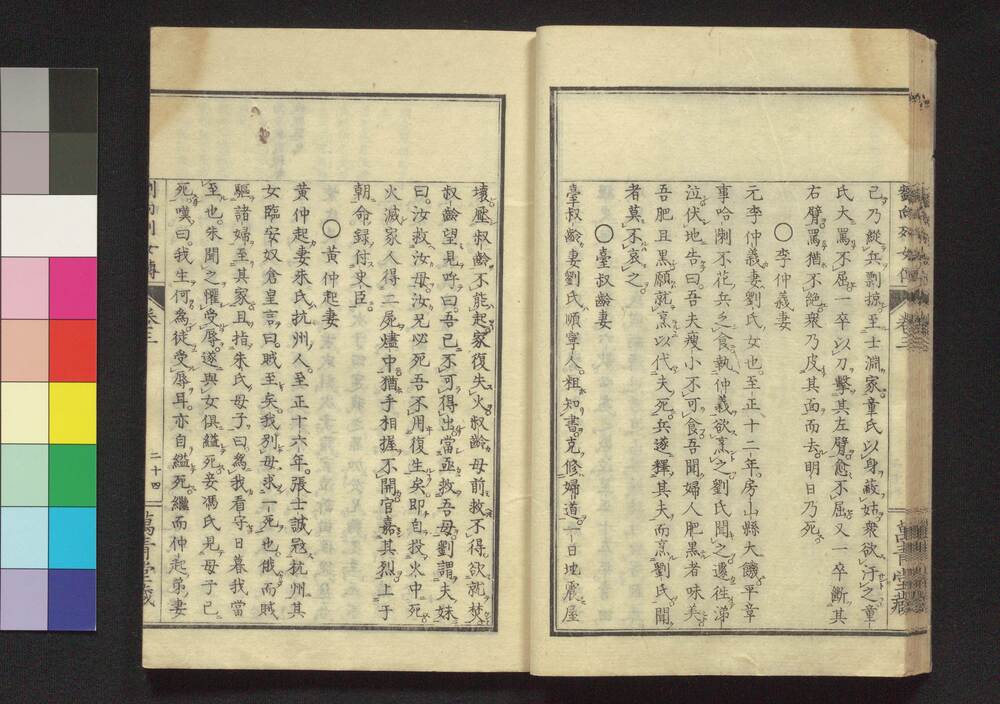 己乃縱兵剽掠至士淵家童氏以身蔽姑衆欲汙之童
氏大罵不屈一卒以刀擊其左臂愈不屈又一卒斷其
右臂罵猶不絶衆乃皮其面而去明日乃死
○李仲義妻
元李仲義妻劉氏女也至正十二年房山縣大饑平章
事哈剌不花兵乏食執仲義欲烹之劉氏聞之遷往涕
泣伏地告曰吾夫瘦小不可食吾聞婦人肥黒者味美
吾肥且黒願就烹以代夫死兵遂釋其夫而烹劉氏聞
者莫不哀之
○臺叔齡妻
臺叔齡妻劉氏順寧人粗知書克修婦道一日地震屋
壞壓叔齡不能起家復失火叔齡母前救不得欲就焚
叔齡望見呼曰吾已不可得出當亟救吾母劉謂夫妹
曰汝救汝母汝兄必死吾不用復生矣即自投火中死
火滅家人得二屍燼中猶手相握不開官嘉其烈上于
朝命録付史臣
○黄仲起妻
黄仲起妻朱氏抗州人至正十六年張士誠寇抗州其
女臨安奴倉皇言曰賊至矣我別母求一死也俄而賊
驅諸婦至其家且指朱氏母子曰為我看守日暮我當
至也朱聞之懼受辱遂與女俱縊死妾馮氏見母子已
死嘆曰我生何為徒受辱耳亦自縊死繼而仲起弟妻
劉向列女傳
卷三
二十四
萬青堂藏